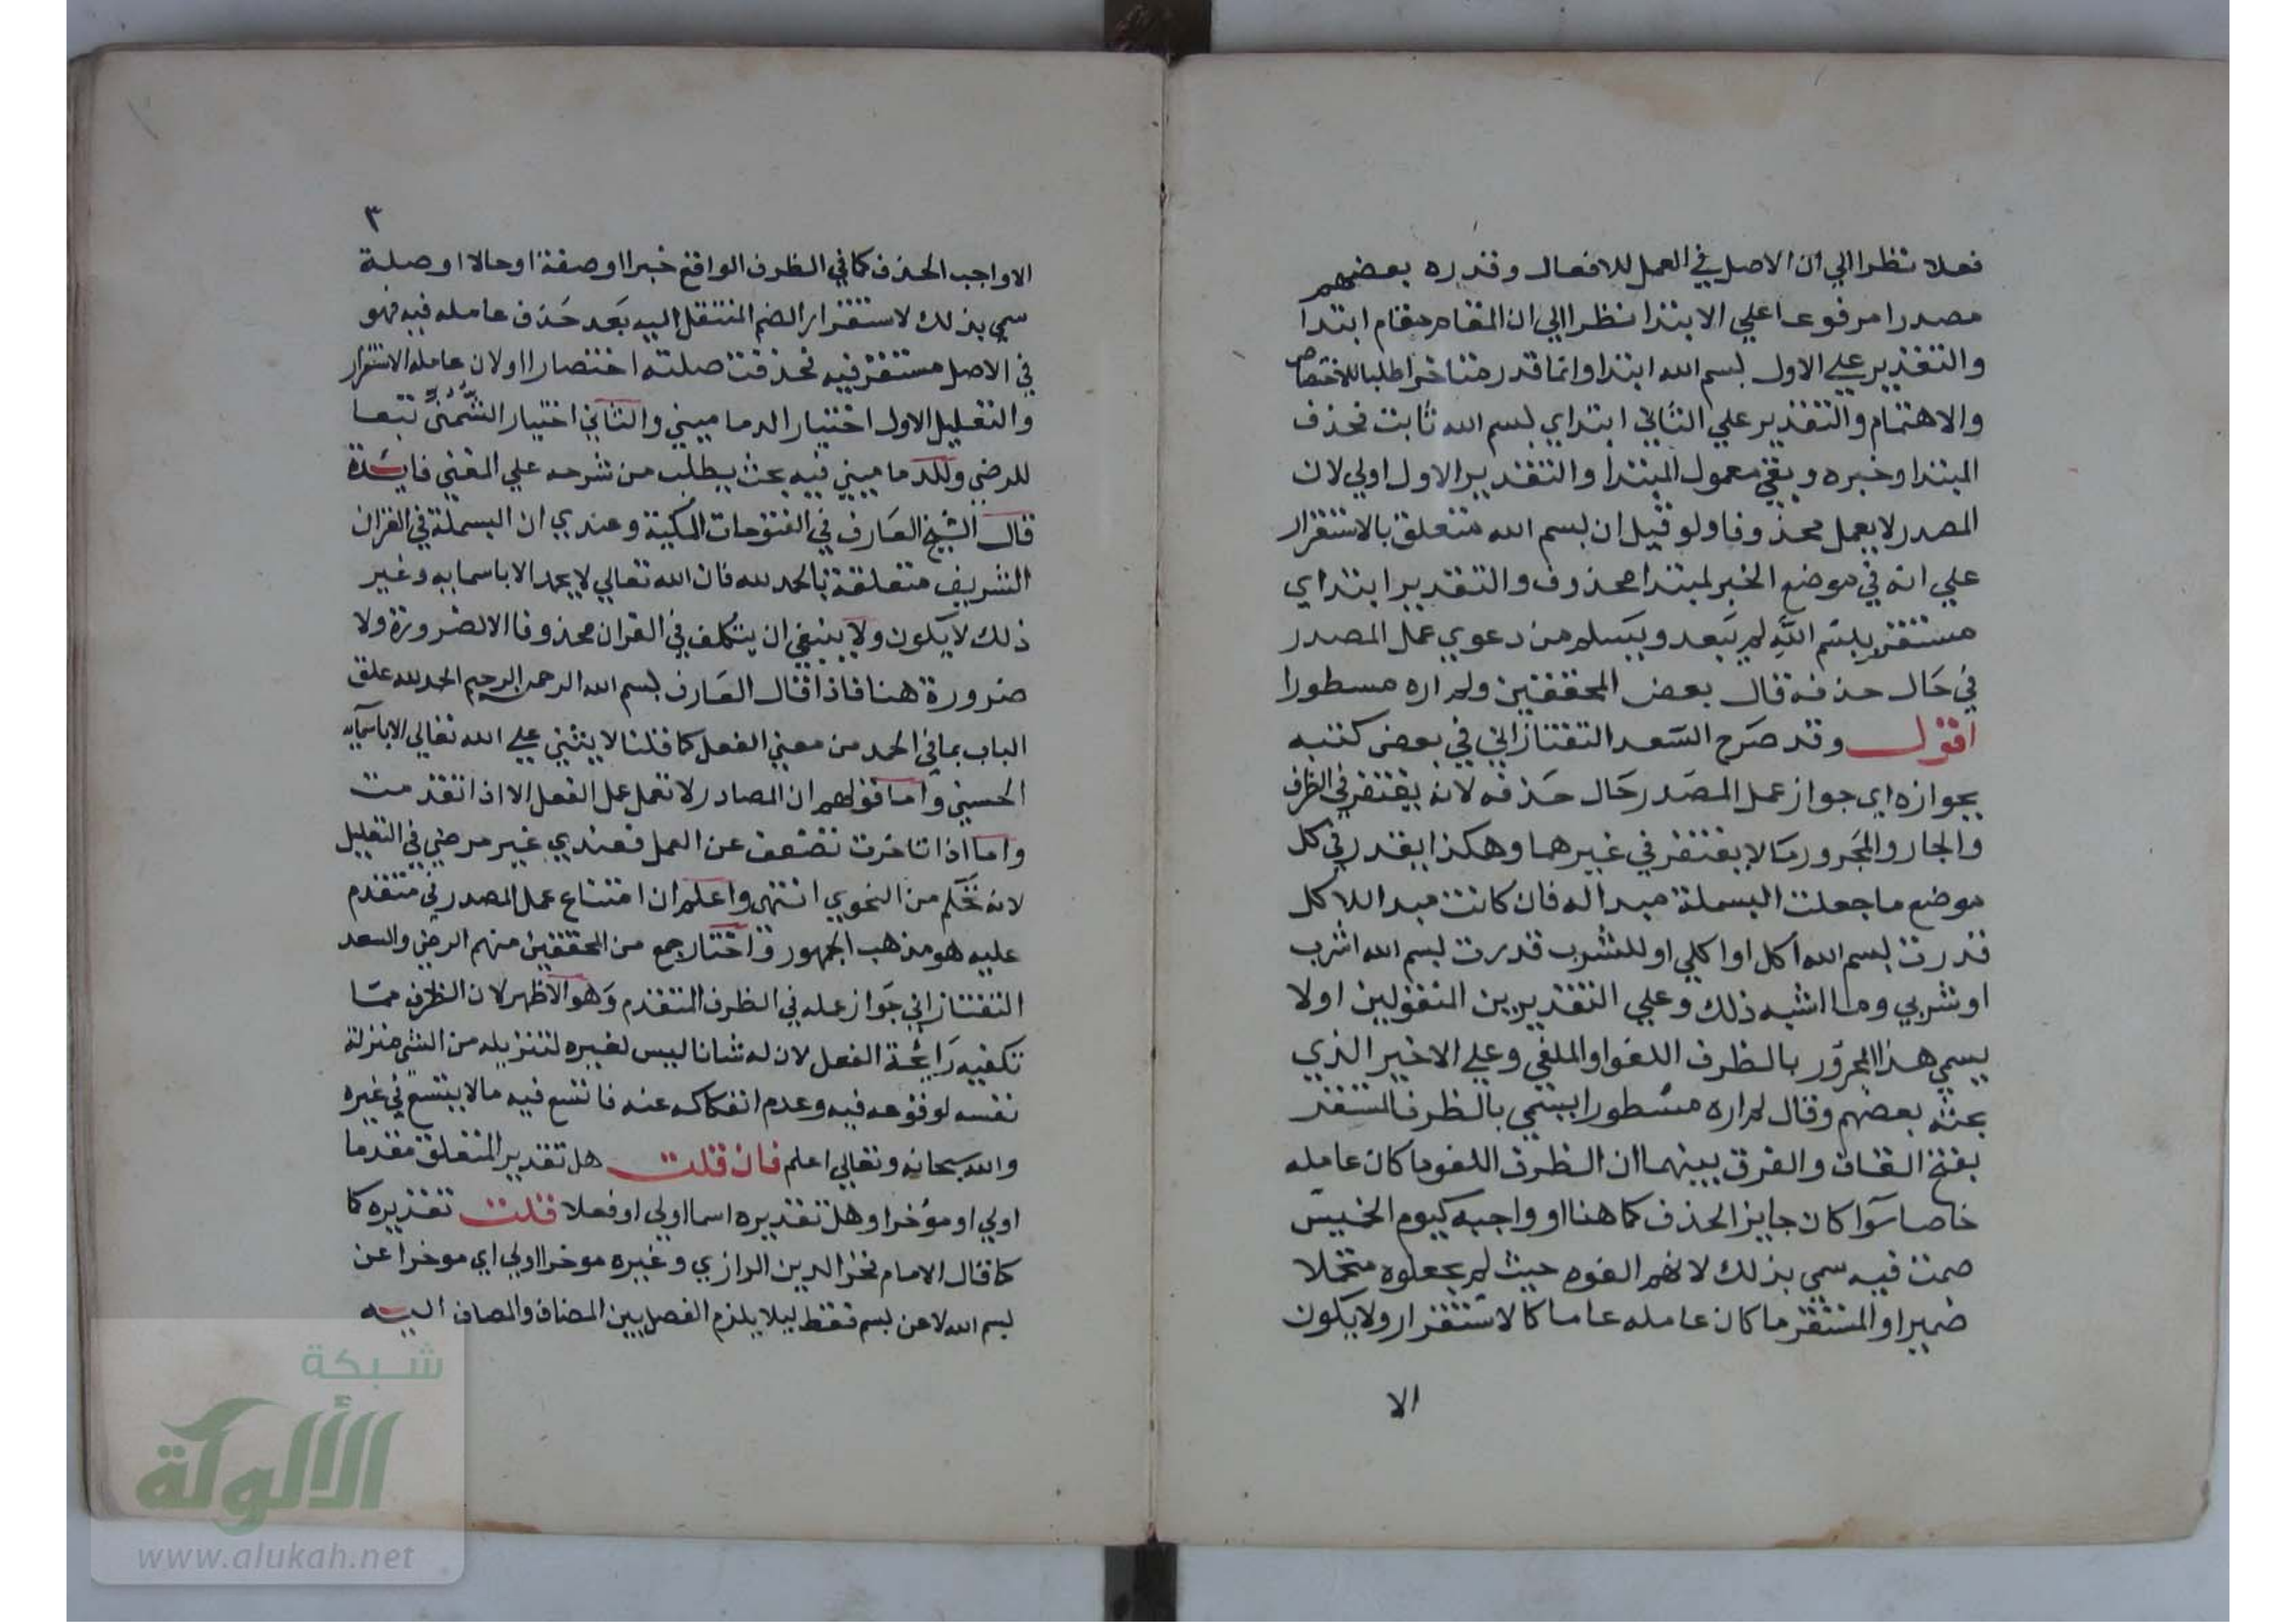 فعلا نظرا الي ان الاصل في العمل للافعال وقدره بعضهم
مصدرا مرفوعا علي الابتدا نظرا الي ان المقام مقام ابتدا
والتقدير علي الاول بسم الله ابتدا وانما قدر متاخرا طلبا للاختصاص
والاهتمام والتقدير علي الثاني ابتداي بسم الله ثابت فحذف
المبتدا وخبره وبقي معمول المبتدا والتقدير الاول اولي لان
المصدر لا يعمل محذوفا ولو قيل ان بسم الله متعلق بالاستقرار
علي انه في موضع الخبر لمبتدا محذوف والتقدير ابتداي
مستقر بسم الله لم يبعد ويسلم من دعوي عمل المصدر
في حال حذفه قال بعض المحققين ولم اره مسطورا
اقول وقد صرح السعد التفتازاني في بعض كتبه
بجوازه اي جواز عمل المصدر حال حذفه لانه يغتفر في الظرف
والجار والمجرور ما لا يغتفر في غيرهما وهكذا يقدر في كل
موضع ما جعلت البسملة مبدا له فان كانت مبدا للاكل
قدرت بسم الله اكل او اكلي او للشرب قدرت بسم الله اشرب
او شربي وما اشبه ذلك وعلي التقديرين المنقولين اولا
يسمي هذا المجرور بالظرف اللغو او الملغي وعلي الاخير الذي
بحثه بعضهم وقال لم اره مسطورا يسمي بالظرف المستقر
بفتح القاف والفرق بينهما ان الظرف اللغو ما كان عامله
خاصا سوا كان جايز الحذف كما هنا او واجبه كيوم الخميس
صمت فيه سمي بذلك لانهم الغوه حيث لم يجعلوه متحملا
ضميرا والمستقر ما كان عامله عاما كالاستقرار ولا يكون
الا
٣
الا واجب الحذف كما في الظرف الواقع خبرا او صفة او حالا او صلة
سمي بذلك لاستقرار الضم المنتقل اليه بعد حذف عامله فيه فهو
في الاصل مستقر فيه فحذفت صلته اختصارا او لان عامله الاستقرار
والتعليل الاول اختيار الدماميني والثاني اختيار الشمني تبعا
للرضي وللدماميني فيه بحث يطلب من شرحه علي المغني فايدة
قال الشيخ العارف في الفتوحات المكية وعندي ان البسملة في القران
الشريف متعلقة بالحمد لله فان الله تعالي لا يحمد الا باسمايه وغير
ذلك لا يكون ولا ينبغي ان يتكلف في القران محذوفا الا لضرورة ولا
ضرورة هنا فاذا قال العارف بسم الله الرحمن الرحيم الحمد لله علق
الباب بما في الحمد من معني الفعل كما قلنا لا يثني علي الله تعالي الا باسمايه
الحسني واما قولهم ان المصادر لا تعمل عمل الفعل الا اذا تقدمت
واما اذا تاخرت تضعف عن العمل فعندي غير مرضي في التعليل
لانه تحكم من النحوي انتهي واعلم ان امتناع عمل المصدر في متقدم
عليه هو مذهب الجمهور واختار جمع من المحققين منهم الرضي والسعد
التفتازاني جواز عمله في الظرف المتقدم وهو الاظهر لان الظرف مما
تكفيه رايحة الفعل لان له شانا ليس لغيره لتنزيله من الشي منزلة
نفسه لوقوعه فيه وعدم انفكاكه عنه فاتسع فيه ما لا يتسع في غيره
والله سبحانه وتعالي اعلم فان قلت هل تقدير المتعلق مقدما
اولي او مؤخرا وهل تقديره اسما اولي او فعلا قلت تقديره كا
كما قال الامام فخر الدين الرازي وغيره موخرا اولي اي موخرا عن
بسم الله لا عن بسم فقط ليلا يلزم الفصل بين المضاف والمضاف اليه
شبكة
الألوكة
www.alukah.net